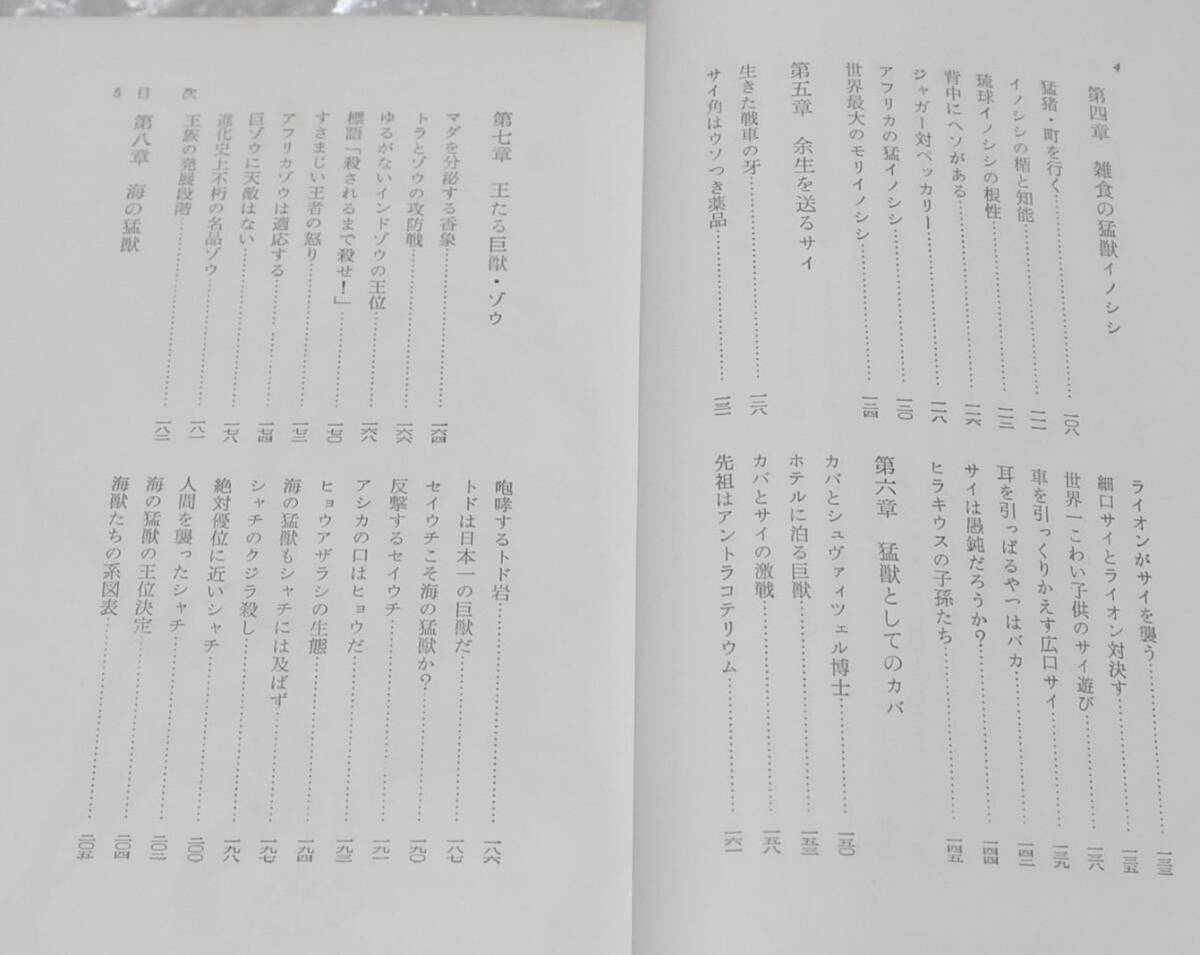 4
第四章　雑食の猛獣イノシシ
猛猪・町を行く……………一〇八
イノシシの楯と知能……………一一一
琉球イノシシの根性……………一一三
背中にヘソがある……………一一六
ジャガー対ペッカリー……………一一八
アフリカの猛イノシシ……………一二〇
世界最大のモリイノシシ……………一二四
第五章　余生を送るサイ
生きた戦車の牙……………一二八
サイ角はウソつき薬品……………一三一
ライオンがサイを襲う……………一三三
細口サイとライオン対決す……………一三五
世界一こわい子供のサイ遊び……………一三八
車を引っくりかえす広口サイ……………一三九
耳を引っぱるやつはバカ……………一四二
サイは愚鈍だろうか？……………一四四
ヒラキウスの子孫たち……………一四五
第六章　猛獣としてのカバ
カバとシュヴァイツェル博士……………一五〇
ホテルに泊る巨獣……………一五三
カバとサイの激戦……………一五八
先祖はアントラコテリウム……………一六一
第七章　王たる巨獣・ゾウ
マダを分泌する香象……………一六四
トラとゾウの攻防戦……………一六六
ゆるがないインドゾウの王位……………一六八
標語「殺されるまで殺せ！」……………一七〇
すさまじい王者の怒り……………一七三
アフリカゾウは適応する……………一七四
巨ゾウに天敵はない……………一七八
進化史上不朽の名品ゾウ……………一八一
王族の発展段階……………一八二
第八章　海の猛獣
咆哮するトド岩……………一八六
トドは日本一の巨獣だ……………一八七
セイウチこそ海の猛獣か？……………一九〇
反撃するセイウチ……………一九一
アシカの口はヒョウだ……………一九三
ヒョウアザラシの生態……………一九四
海の猛獣もシャチには及ばず……………一九七
シャチのクジラ殺し……………一九八
絶対優位に近いシャチ……………二〇〇
人間を襲ったシャチ……………二〇二
海の猛獣の王位決定……………二〇四
海獣たちの系図表……………二〇五
5　目　次